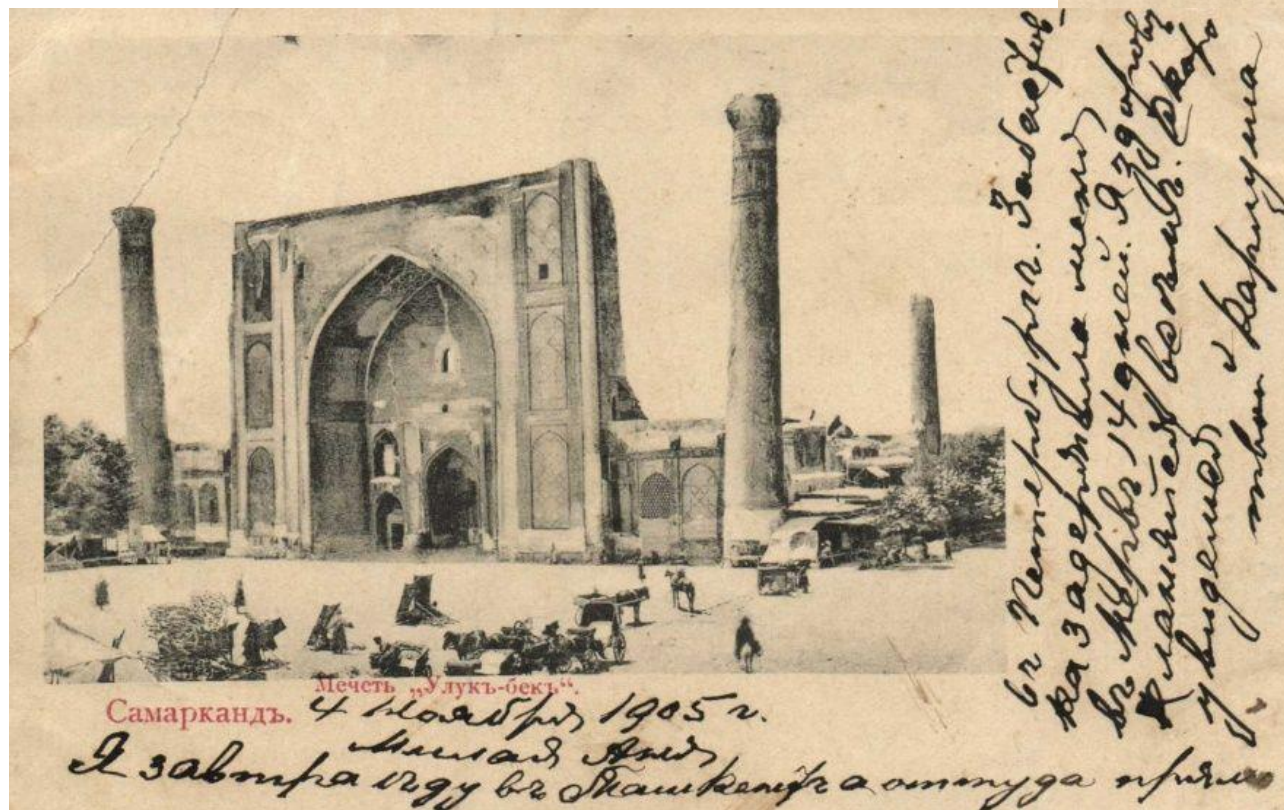 Мечеть „Улукъ-бекъ“.
Самаркандъ. 4 Ноября 1905 г.
Милая Аня
Я завтра ѣду въ Ташкентъ а оттуда прямо
въ Петербургъ. Забастов-
ка задержала меня
въ Мервѣ 14 дней. Я здоровъ
Кланяйся всѣмъ. Скоро
увидимся
твой Карлуша